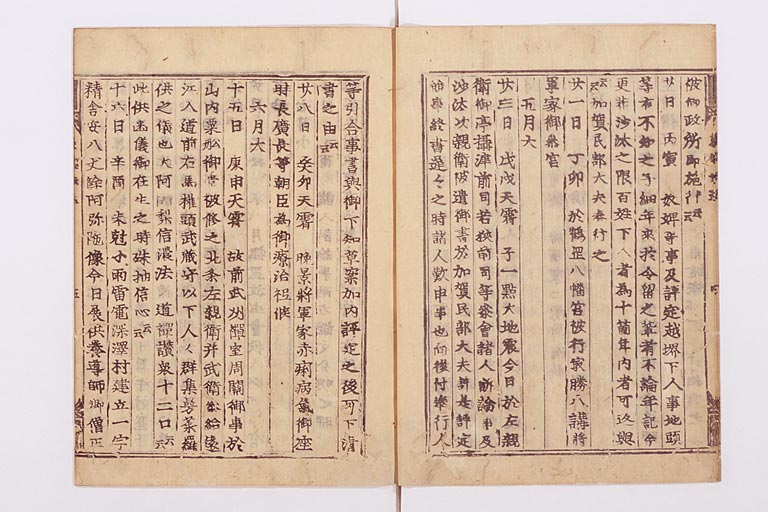 彼御政所即施行云云
廿日 丙寅 奴婢等事及評定越堺下人事地頭
等存不知之子細年來於令留之輩者不論年記今
更非沙汰之限百姓下人者為十箇年内者可改與
云云加賀民部大夫奉行之
廿一日 丁卯 於鶴罡八幡宮被行家勝八講將
軍家御參宮
五月大
廿三日 戊戌天霽 子一點大地震今日於左親
衛御亭攝津前司若狹前司等參會諸人訴論事及
沙汰次親衛被遣御書於加賀民部大夫許是評定
事終書遣之時諸人歎申事也向後付奉行人
等引合事書與御下知草案加内評定之後可下清
書之由云云
廿八日 癸卯天霽 晩景將軍家赤痢病氣御座
時長廣長等朝臣為御療治祗候
六月大
十五日 庚申天霽 故前武州禪室周闋御事於
山内粟舩御堂被修之北条左親衛并武衛參給遠
江入道前右馬權頭武蔵守以下人々群集曼荼羅
供之儀也大阿闍梨信濃法 道禪讃衆十二口云云
此供幽儀御在生之時殊抽信心云云
十六日 辛酉 未尅小雨雷電深澤村建立一宇
精舎安八丈餘阿弥陀像今日展供養導師卿僧正